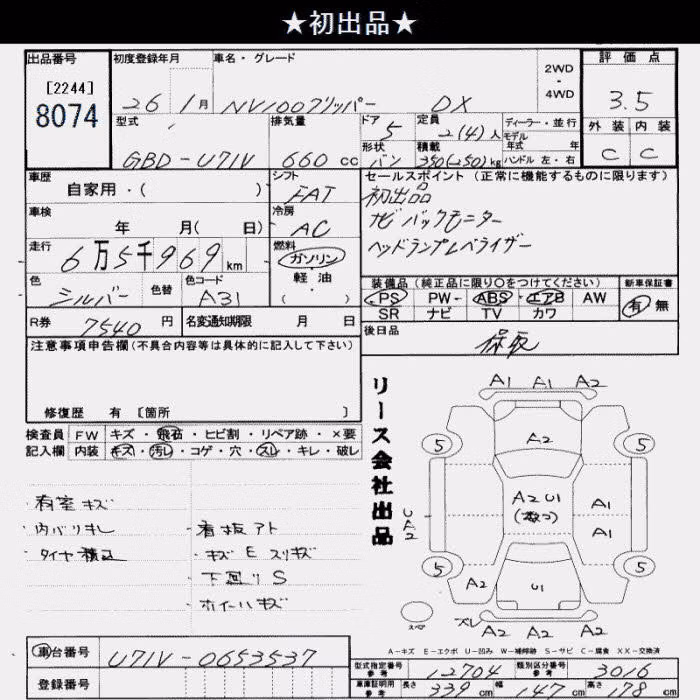 ★初出品★
出品番号
[2244]
8074
初度登録年月 車名・グレード
26 1月 NV100クリッパー DX
2WD・4WD
評価点
3.5
外装 内装
C C
型式 排気量 ドア 定員 ディーラー・並行
GBD-U71V 660cc 5 2(4)人 モデル年式 年
形状 積載
バン 350(250)kg ハンドル 左・右
車歴 シフト セールスポイント (正常に機能するものに限ります)
自家用・( ) FAT 初出品
車検 冷房 ナビ バックモニター
年 月( 日) AC ヘッドランプレベライザー
走行 燃料
6万5千969km ガソリン・軽油・( )
色 色替 色コード
シルバー A31
装備品 (純正品に限り○をつけてください) 新車保証書
PS PW ABS エアB AW 有・無
SR ナビ TV カワ
R券 7540円 名変通知期限 月 日
後日品 保取
注意事項申告欄 (不具合内容等は具体的に記入して下さい)
修復歴 有 [箇所 ]
検査員記入欄
FW キズ・飛石・ヒビ割・リペア跡・×要
内装 キズ・汚レ・コゲ・穴・スレ・キレ・破レ
荷室キズ
内バリキレ
タイヤ積込
看板アト
キズ E スリキズ
下廻りS
ホイールキズ
リース会社出品
A1 A1 A2
5 A2 5
A2 U1 A1
UA2 A1
5 5
A2 U1
スペア ズレ
A2 A2 A2
A-キズ E-エクボ U-凹み W-補修跡 S-サビ C-腐食 XX-交換済
車台番号 U71V-0653537
登録番号
型式指定番号 参考 12704 類別区分番号 参考 3016
車庫証明用 参考 長さ 339cm 幅 147cm 高さ 178cm